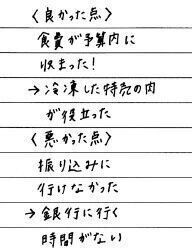 〈良かった点〉
食費が予算内に
収まった！
→冷凍した特売の肉
が役立った
〈悪かった点〉
振り込みに
行けなかった
→銀行に行く
時間がない